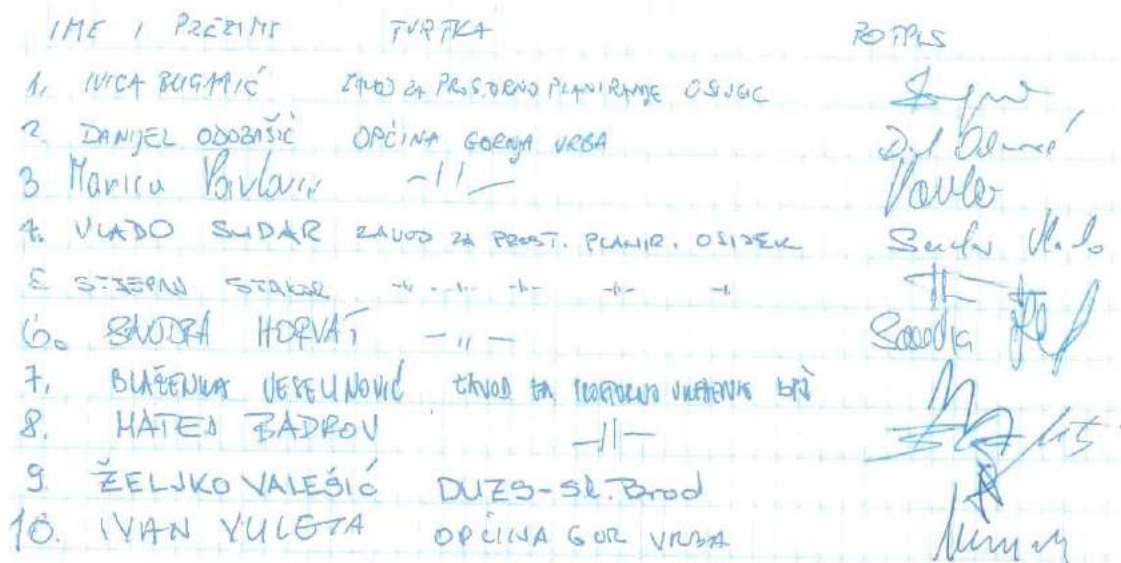 IME I PREZIME TVRTKA POTPIS
1. IVICA BUGARIĆ ZAVOD ZA PROSTORNO PLANIRANJE OSIJEK
2. DANIJEL ODOBAŠIĆ OPĆINA GORNJA VRBA
3 Marica Pavlović -11-
4. VLADO SUDAR ZAVOD ZA PROST. PLANIR. OSIJEK Sudar Vlado
5 STJEPAN STAKOR -11- -11- -11- -11- -11-
6. SANDRA HORVAT -11- Sandra
7. BLAŽENKA VESELINOVIĆ ZAVOD ZA PROSTORNO UREĐENJE BPŽ
8. MATEJ BADROV -11-
9. ŽELJKO VALEŠIĆ DUZS-Sl. Brod
10. IVAN VULETA OPĆINA GOR VRBA